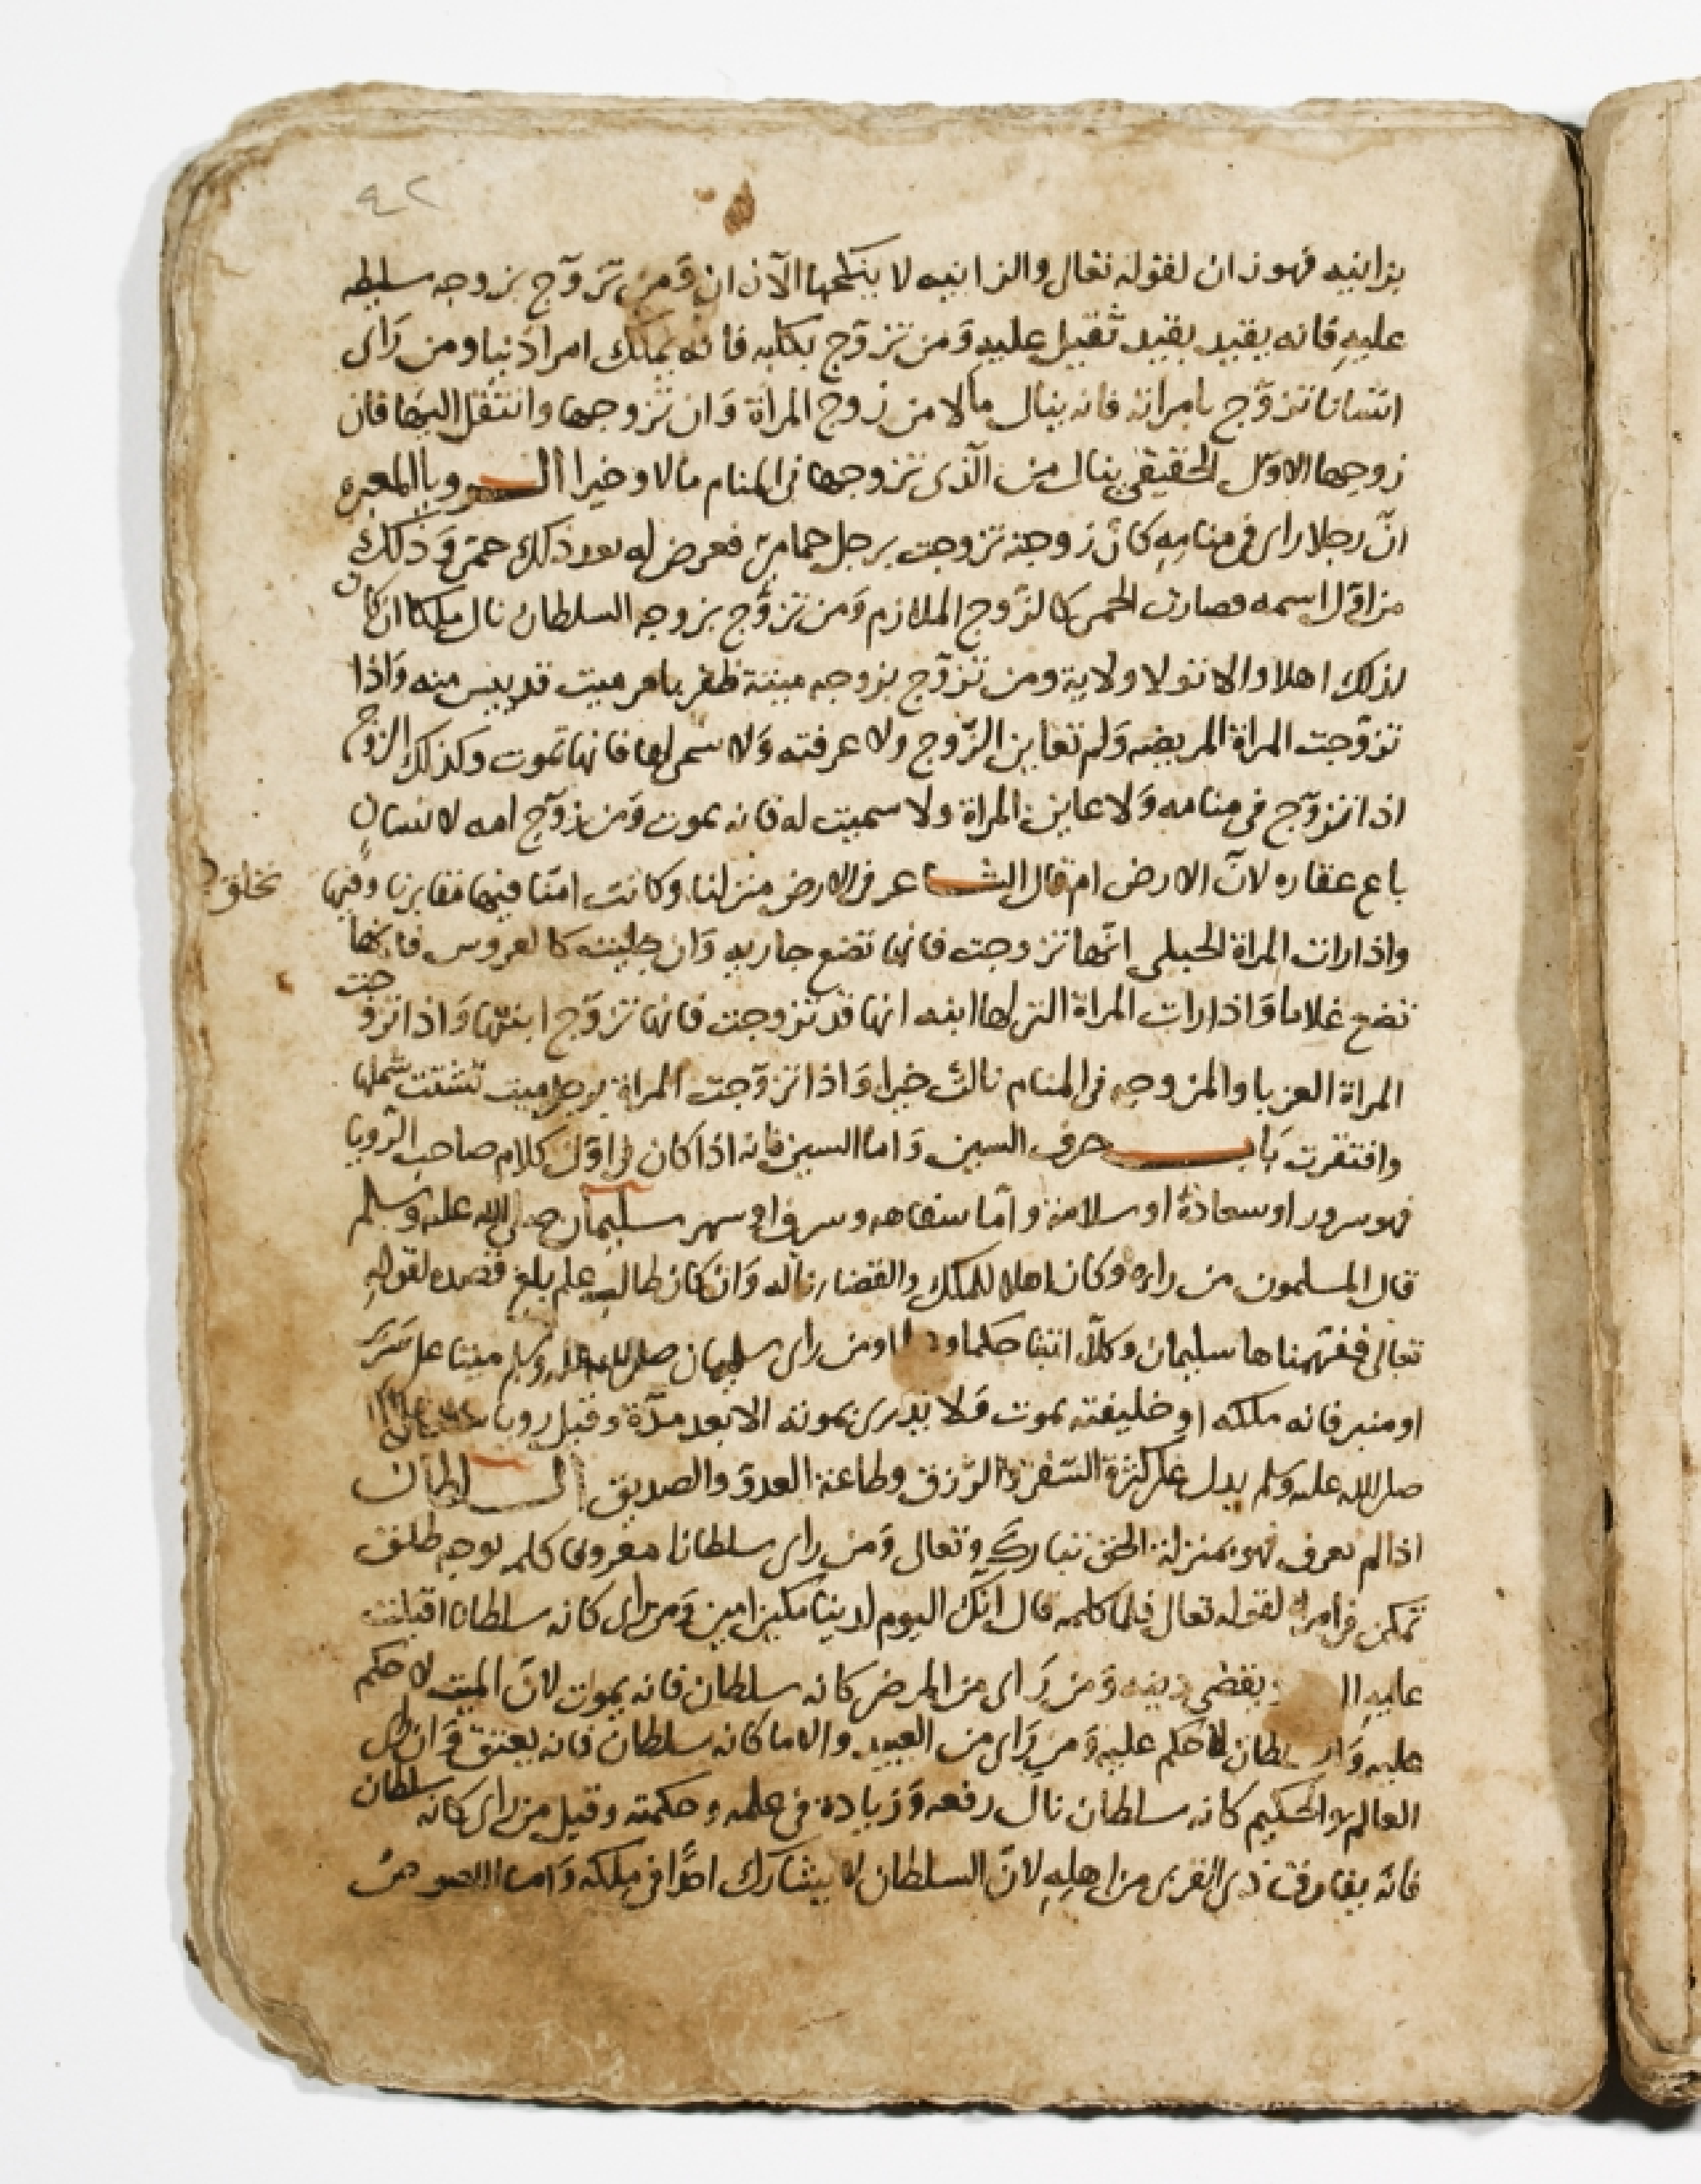 ٤٢
بزانيه فهو زان لقوله تعالى والزانيه لا ينكحها الا زان ومن تزوج بزوجه سليطه
عليه فانه يقيد بقيد ثقيل عليه ومن تزوج بكلبه فانه يملك امرا دنيا ومن راى
انسانا تزوج بامراته فانه ينال مالا من زوج المراة وان تزوجها وانتقل اليها فان
زوجها الاول الحقيقي ينال من الذى تزوجها فى المنام مالا وخيرا الرويا المعبره
ان رجلا راى فى منامه كان زوجته تزوجت برجل حمامى فعرض له بعد ذلك حمى وذلك
من اول اسمه فصارت الحمى كالزوج الملازم ومن تزوج بزوجه السلطان نال ملكا ان كان
لذلك اهلا والا تولا ولاية ومن تزوج بزوجه ميتة ظفر بامر ميت قد ييس منه واذا
تزوجت المراة المريضه ولم تعاين الزوج ولا عرفته ولا سمى لها فانها تموت وكذلك الزوج
اذا تزوج فى منامه ولا عاين المراة ولا سميت له فانه يموت ومن زوج امه لانسان
باع عقاره لان الارض ام قال الشاعر فى الارض منزلنا وكانت امنا فيها مقابرنا وفيها
نخلق
واذا رات المراة الحبلى انها تزوجت فانها تضع جاريه وان جليت كالعروس فانها
تضع غلاما واذا رات المراة التى لها ابنه انها قد تزوجت فانها تزوج ابنتها واذا تزوجت
المراة العزبا والمزوجه فى المنام نالت خيرا واذا تزوجت المراة برجل ميت تشتت شملها
وافتقرت باب حرف السين واما السين فانه اذا كان فى اول كلام صاحب الرويا
فهو سرور او سعادة او سلامة واما سفاهه وسرف او سهر سليمان صلى الله عليه وسلم
قال المسلمون من راه وكان اهلا للملك والقضا ناله وان كان طالب علم بلغ قصده لقوله
تعالى ففهمناها سليمان وكلا اتينا حكما ومن راى سليمان صلى الله عليه وسلم ميتا على سرير
او منبر فانه ملكه او خليفته يموت ولا يدرى بموته الا بعد مدة وقيل رويا
صلى الله عليه وسلم يدل على كثرة السفر والرزق وطاعة العدو والصديق السلطان
اذا لم يعرف فهو بمنزلة الحق تبارك وتعالى ومن راى سلطانا معروفا كلمه بوجه طلق
تمكن فى امره لقوله تعالى فلما كلمه قال انك اليوم لدينا مكين امين ومن راى كانه سلطان اقبلت
عليه ويقضى دينه ومن راى من المرض كانه سلطان فانه يموت لان الميت لا حكم
عليه لا حكم عليه ومن راى من العبيد والاما كانه سلطان فانه يعتق وان راى
العالم والحكيم كانه سلطان نال رفعه وزيادة فى علمه وحكمته وقيل من راى كانه سلطان
فانه يفارق ذى القربى من اهله لان السلطان لا يشارك احدا فى ملكه واما